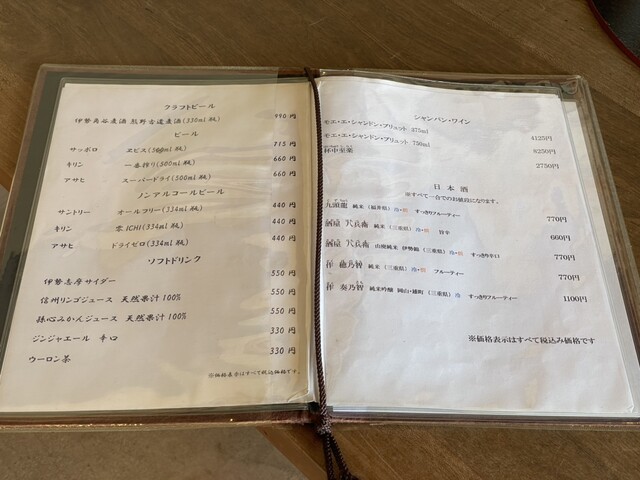 クラフトビール
伊勢角谷麦酒 熊野古道麦酒(330ml瓶) 990円
ビール
サッポロ ヱビス(500ml瓶) 715円
キリン 一番搾り(500ml瓶) 660円
アサヒ スーパードライ(500ml瓶) 660円
ノンアルコールビール
サントリー オールフリー(334ml瓶) 440円
キリン 零ICHI(334ml瓶) 440円
アサヒ ドライゼロ(334ml瓶) 440円
ソフトドリンク
伊勢志摩サイダー 550円
信州リンゴジュース 天然果汁100% 550円
みかんジュース 天然果汁100% 550円
ジンジャエール 辛口 330円
ウーロン茶 330円
※価格表示はすべて税込価格です。
シャンパン・ワイン
モエ・エ・シャンドン・ブリュット 375ml 4125円
モエ・エ・シャンドン・ブリュット 750ml 8250円
杯中至楽 2750円
日本酒
※すべて一合でのお値段になります。
九頭龍 純米(福井県)冷・燗 すっきりフルーティー 770円
酒屋 八兵衛 純米(三重県)冷・燗 旨辛 660円
酒屋 八兵衛 山廃純米 伊勢錦(三重県)冷・燗 すっきり辛口 770円
作 穂乃智 純米(三重県)冷・燗 フルーティー 770円
作 奏乃智 純米吟醸 岡山・雄町(三重県)冷 すっきりフルーティー 1100円
※価格表示はすべて税込み価格です